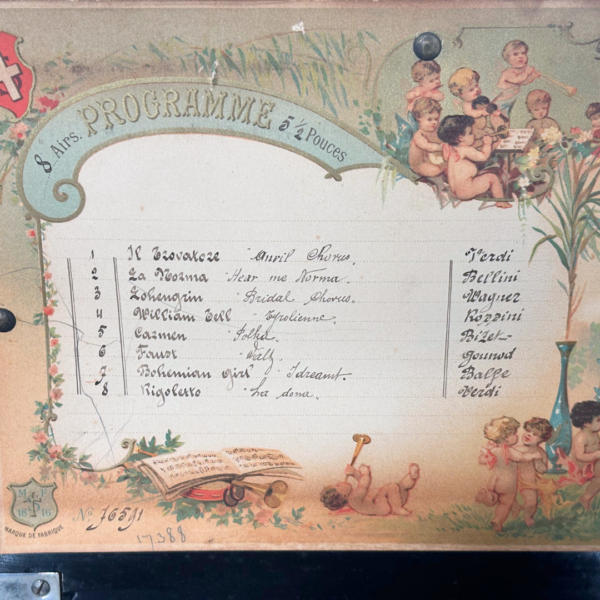 8 Airs. PROGRAMME 5 1/2 Pouces
1 Il Trovatore "Anvil Chorus. Verdi
2 La Norma "Hear me Norma. Bellini
3 Lohengrin "Bridal Chorus. Wagner
4 William Tell "Tyrolienne. Rossini
5 Carmen "Polka. Bizet
6 Faust "Valz. Gounod
7 Bohemian Girl "I dreamt. Balfe
8 Rigoletto "La dona. Verdi
M F
18 16
MARQUE DE FABRIQUE
No 76591
17388